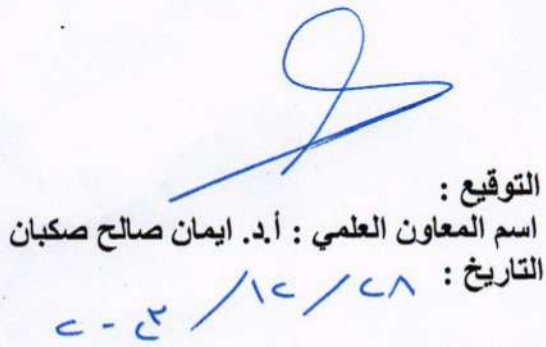 التوقيع :
اسم المعاون العلمي : أ.د. ايمان صالح صكبان
التاريخ : ٢٨ / ١٢ / ٢٠٢٣